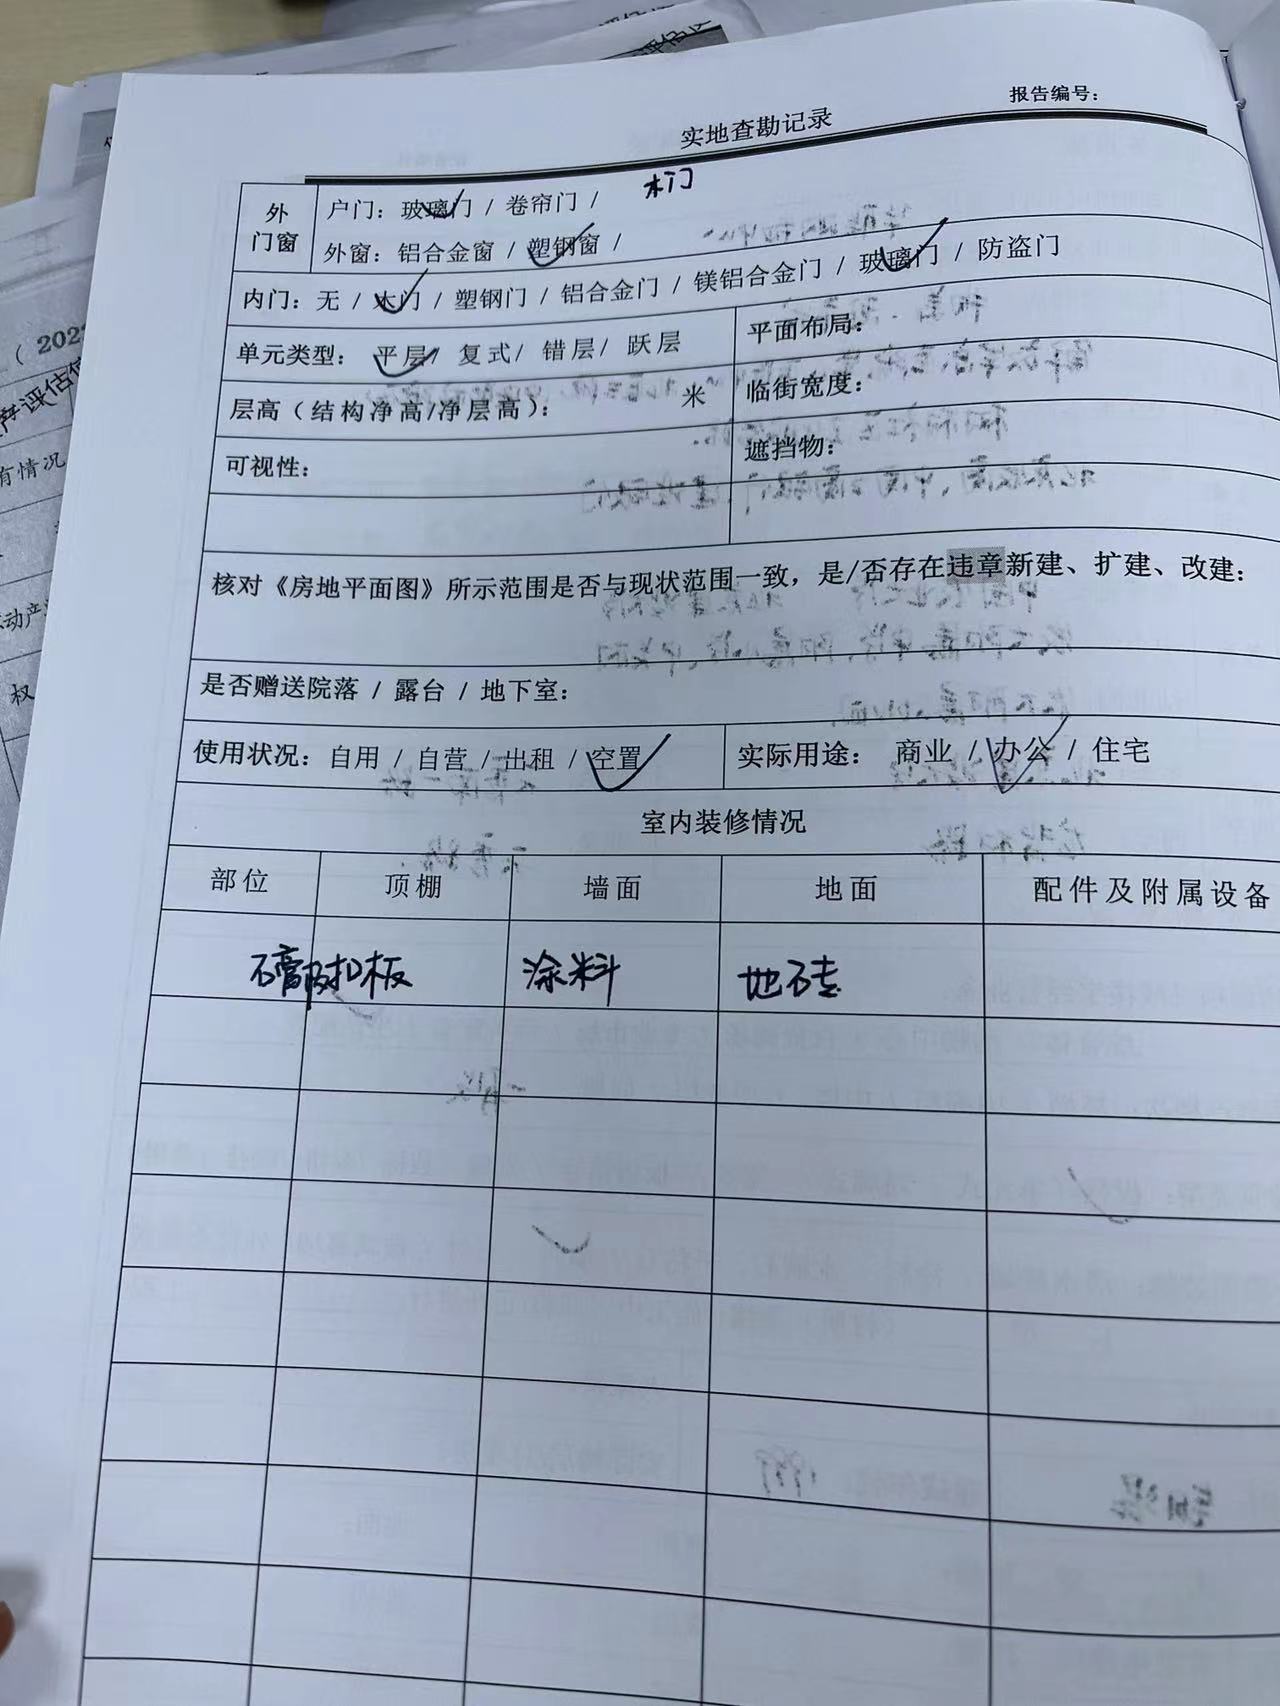 报告编号：
实地查勘记录
外门窗
户门：玻璃门 / 卷帘门 / 木门
外窗：铝合金窗 / 塑钢窗 /
内门：无 / 木门 / 塑钢门 / 铝合金门 / 镁铝合金门 / 玻璃门 / 防盗门
单元类型： 平层/ 复式/ 错层/ 跃层 平面布局：
层高（结构净高/净层高）： 米 临街宽度：
可视性： 遮挡物：
核对《房地平面图》所示范围是否与现状范围一致，是/否存在违章新建、扩建、改建：
是否赠送院落 / 露台 / 地下室：
使用状况：自用 / 自营 / 出租 / 空置 实际用途： 商业 / 办公 / 住宅
室内装修情况
部位 顶棚 墙面 地面 配件及附属设备
扣板 涂料 地砖
（ 202
产评估
有情况
动产
权